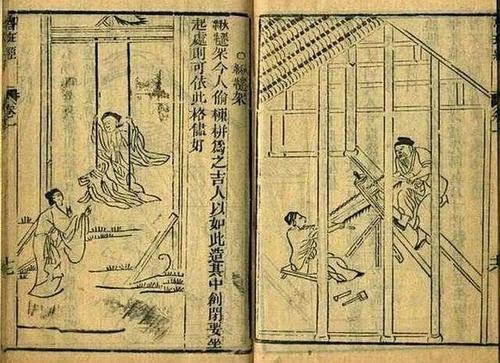 ○鞦韆架
鞦韆架今人偷棟栟爲之吉人以如此造其中創閑要坐
起處則可依此格儘好
班經
卷一